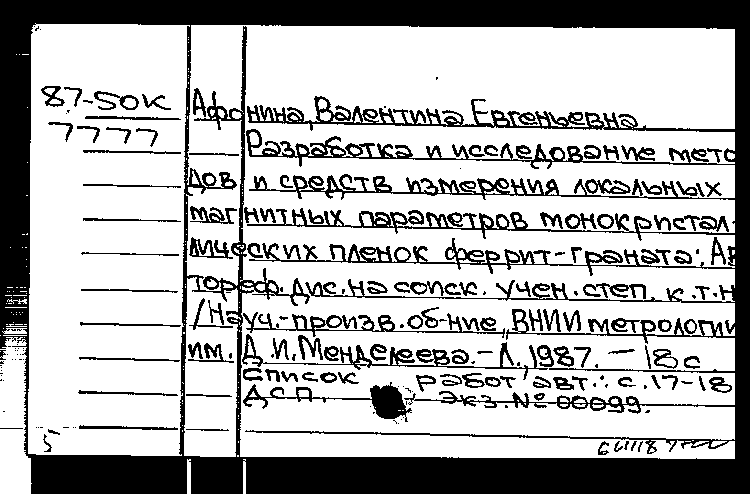 87-50к Афонина, Валентина Евгеньевна.
7777 Разработка и исследование мето
дов и средств измерения локальных
магнитных параметров монокристал-
лических пленок феррит-граната: Ав
тореф. дис. на соиск. учен. степ. к.т.н
/Науч.-произв. об-ние "ВНИИ метрологии
им. Д.И. Менделеева.-Л., 1987. - 18 с.
Список работ авт.: с. 17-18
ДСП. Экз. № 00099.
5